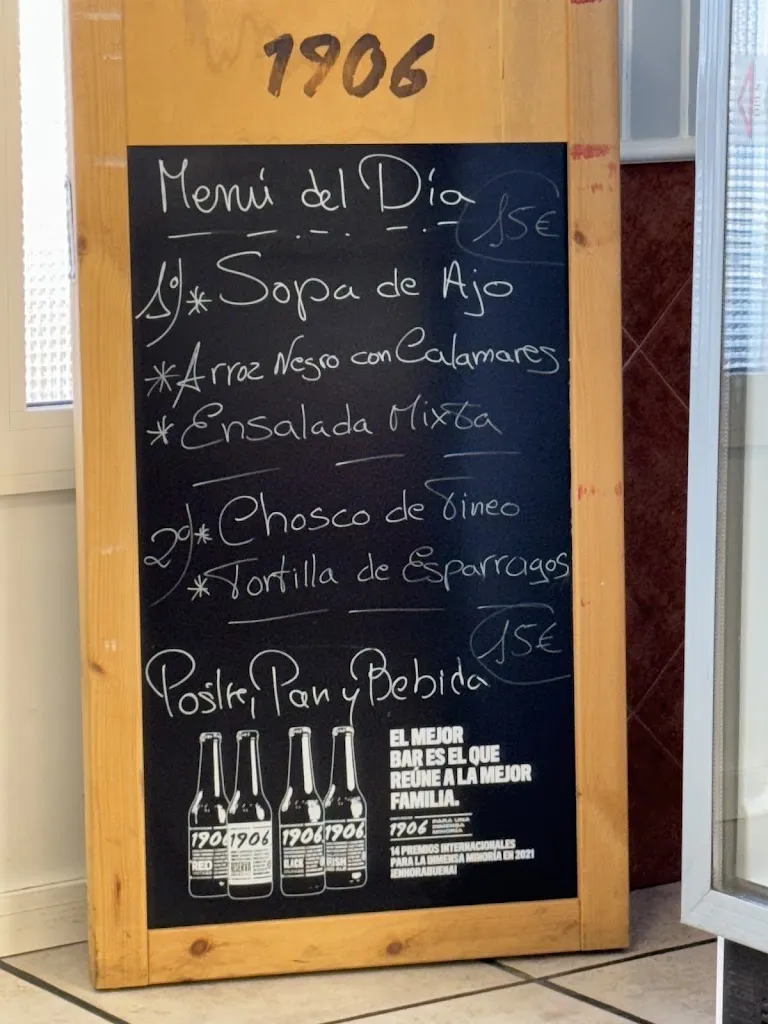 1906
Menú del Día
15€
1º) * Sopa de Ajo
* Arroz Negro con Calamares
* Ensalada Mixta
2º) * Chosco de Tineo
* Tortilla de Esparragos
15€
Postre, Pan y Bebida
EL MEJOR
BAR ES EL QUE
REÚNE A LA MEJOR
FAMILIA.
1906
PARA UNA
INMENSA
MINORÍA
14 PREMIOS INTERNACIONALES
PARA LA INMENSA MINORÍA EN 2021
¡ENHORABUENA!
1906
RED
1906
1906
BLACK
1906
IRISH